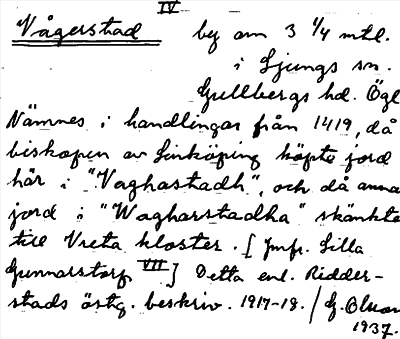 IV
Vågerstad by om 3 1/4 mtl.
i Ljungs sn.
Gullbergs hd. Ögl
Nämnes i handlingar från 1419, då
biskopen av Linköping köpte jord
här i "Vaghastadh", och då anna
jord i "Wagharstadha" skänkte
till Vreta kloster. [Jmfr. Lilla
Gunnarstorp VII] Detta enl. Ridder-
stads östg. beskriv. 1917-18. / G. Olson
1937.